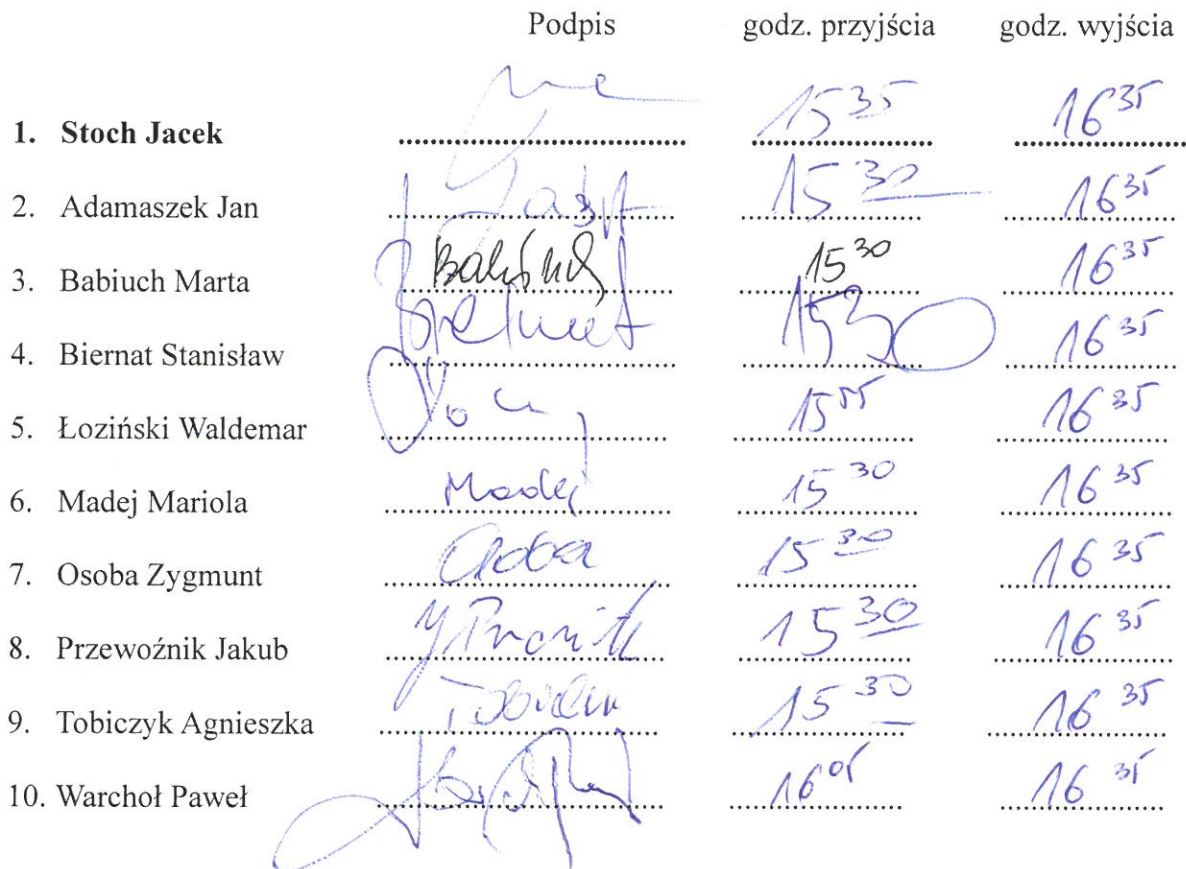 Podpis godz. przyjścia godz. wyjścia
1. Stoch Jacek 15 35 16 35
2. Adamaszek Jan 15 30 16 35
3. Babiuch Marta 15 30 16 35
4. Biernat Stanisław 15 30 16 35
5. Łoziński Waldemar 15 55 16 35
6. Madej Mariola Madej 15 30 16 35
7. Osoba Zygmunt Osoba 15 30 16 35
8. Przewoźnik Jakub 15 30 16 35
9. Tobiczyk Agnieszka 15 30 16 35
10. Warchoł Paweł 16 05 16 35